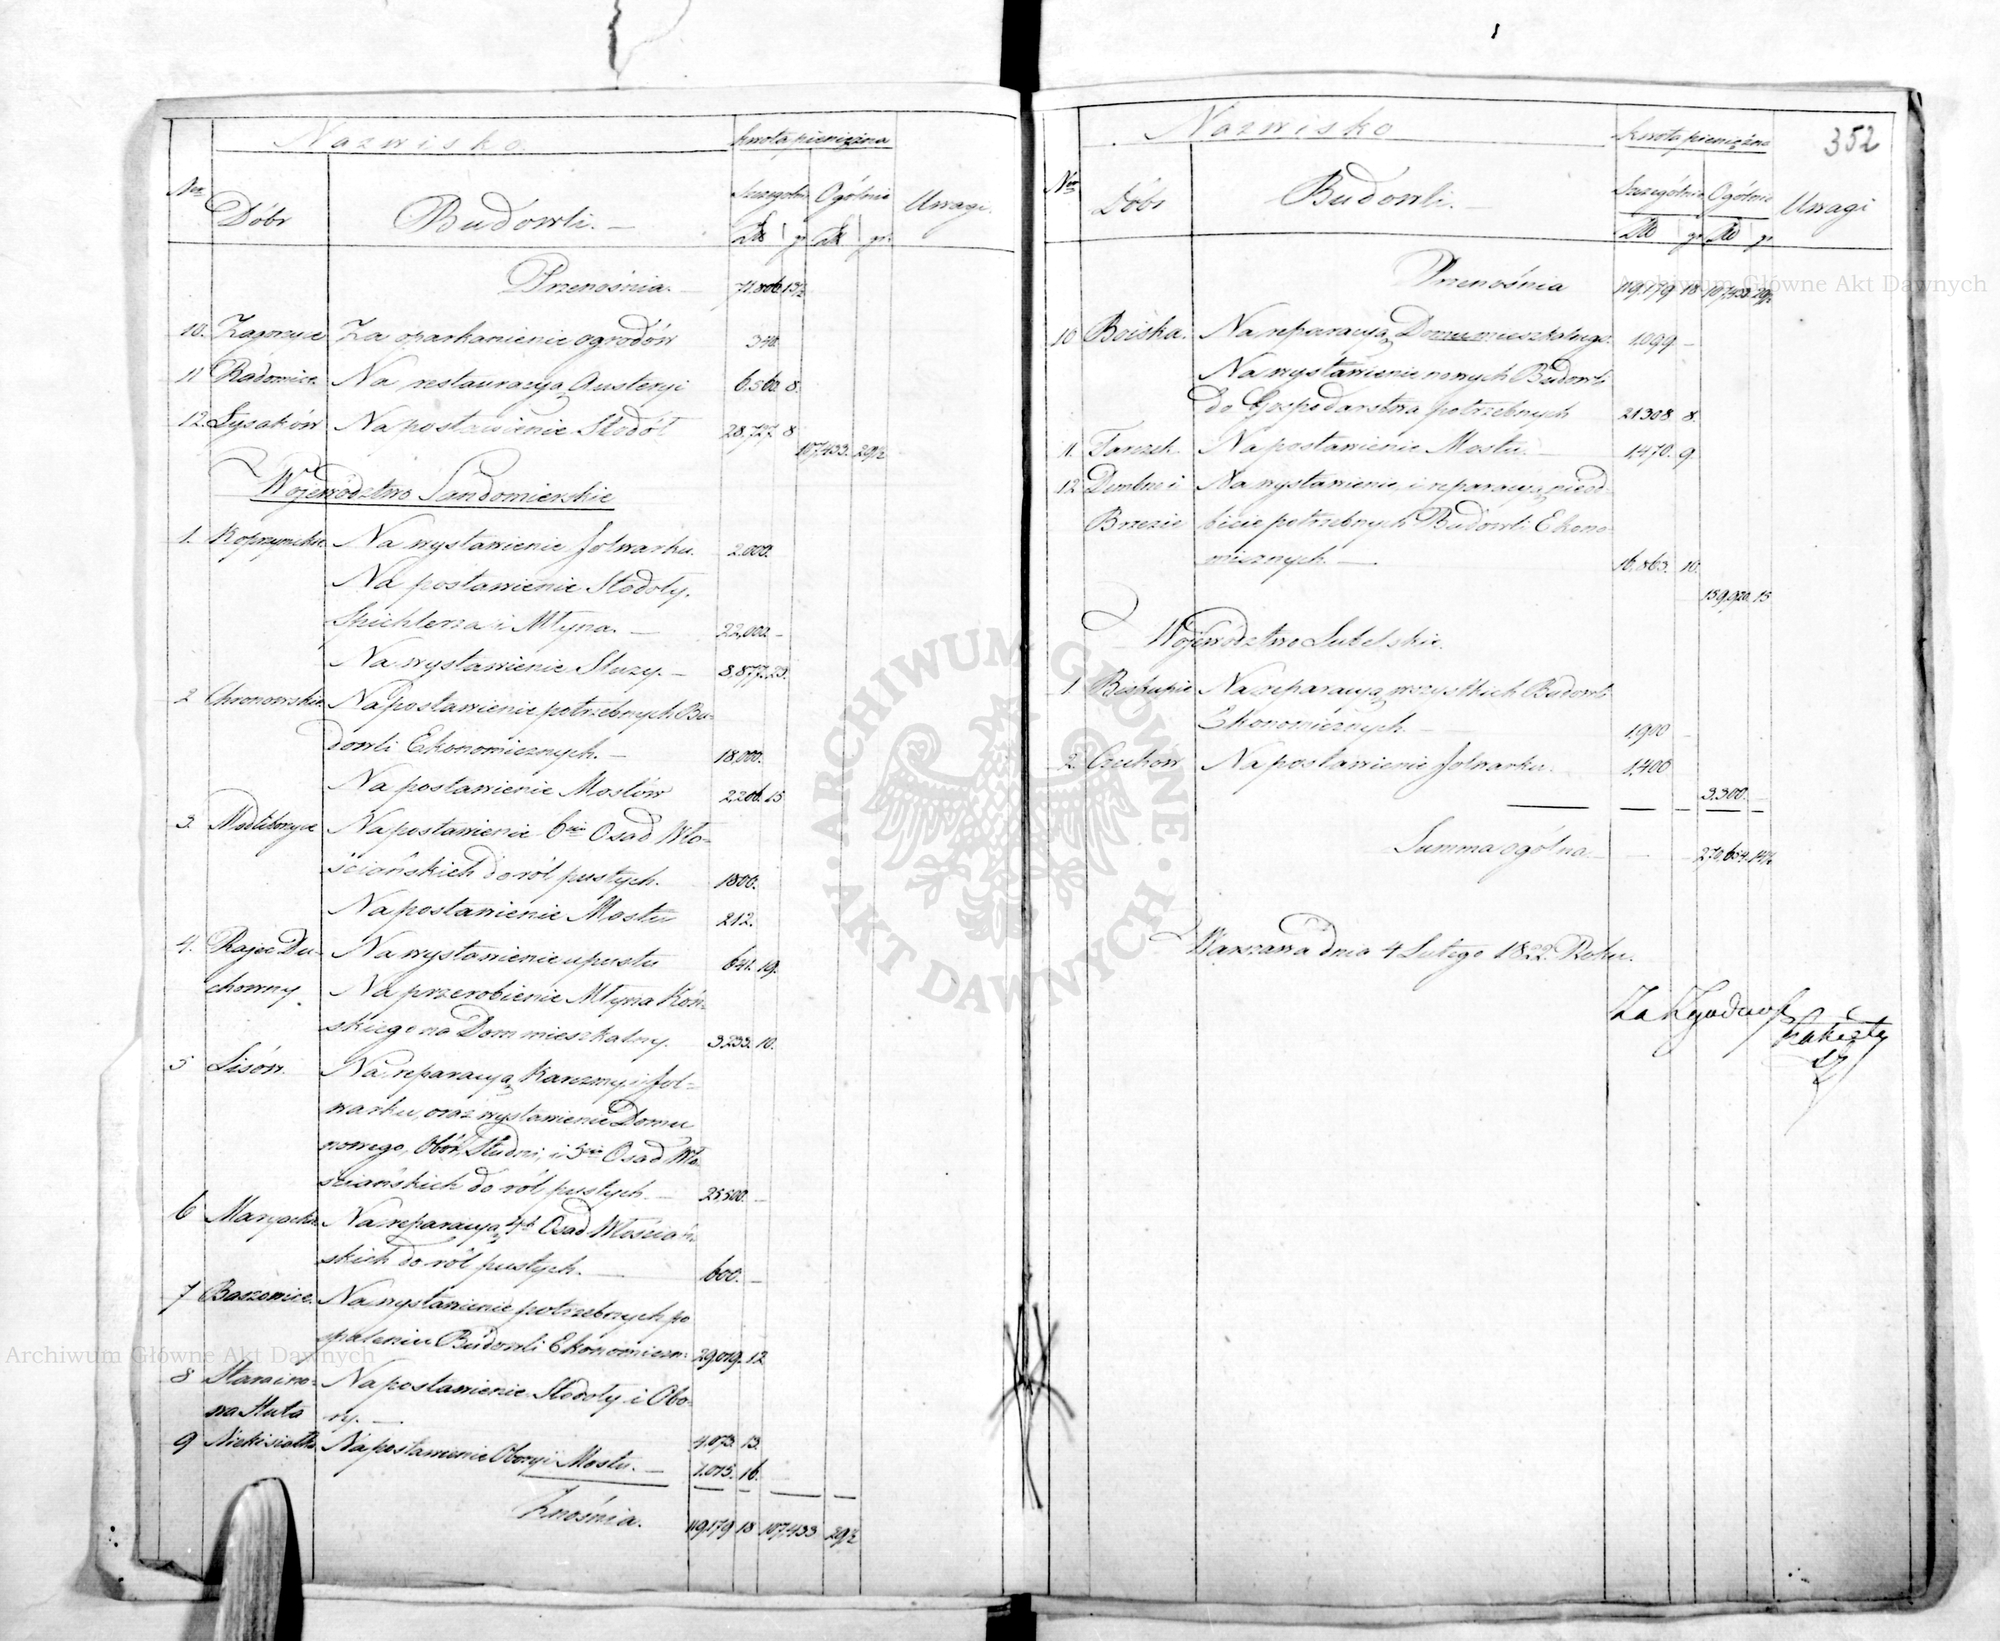 Nazwisko
Kwota pieniężna
Nro
Dóbr
Budowli. —
Szczególnie
Ogólnie
Uwagi.
Złt gr Złt gr.
Przenośnia. — 71,806 13½
10. Zagorzyce Za oparkanienie ogrodów 340.
11 Radomice. Na restauracyą Austeryi 6,560. 8.
12. Łysaków Na postawienie Stodół 28,727. 8
107,433. 29½
Województwo Sandomierskie
1. Koprzywnickie Na wystawienie Folwarku. 2,000.
Na postawienie Stodoły,
Śpichlerza i Młyna. — 22,000. —
Na wystawienie Śluzy. — 8,877. 23.
2 Chronowskie Na postawienie potrzebnych Bu-
dowli Ekonomicznych. — 18,000.
Na postawienie Mostów 2,206. 15
3. Modliborzyce Na postawienie 6ciu Osad Wło-
ściańskich do ról pustych. 1800.
Na postawienie Mostu 212.
4. Rajec Du- Na wystawienie upustu 641. 19.
chowny. Na przerobienie Młyna Koń-
skiego na Dom mieszkalny. 3233. 10.
5 Lisów. Na reparacyą Karczmy i Fol-
warku, oraz wystawienie Domu
nowego, Obór, Studni, i 5ciu Osad Wło-
ściańskich do ról pustych. — 25,500. —
6 Na reparacyą 4ch Osad Włościań-
skich do ról pustych. — 600. —
7 Na wystawienie potrzebnych po
spaleniu Budowli Ekonomiczn: 29,019. 12
8 Stara i no- Na postawienie Stodoły i Obo-
wa Huta ry. — 4,073. 13.
9 Niekisiałka Na postawienie Obory i Mostu. — 1,015. 16.
Znośnia. 119,179 18 107,433 29½
352
Nazwisko
Kwota pieniężna
Nro
Dóbr
Budowli. —
Szczególnie
Ogólnie
Uwagi
Złt gr Złt gr
Przenośnia 119,179 18 107,433 29½
10 Boiska. Na reparacyą Domu mieszkalnego. 1,099 —
Na wystawienie nowych Budowli
do Gospodarstwa potrzebnych 21308. 8.
11. Tarczek Na postawienie Mostu. — 1,470. 9.
12 Dembno i Na wystawienie i reparacyą nieod-
Brzezie bicie potrzebnych Budowli Ekono-
micznych. — 16,863. 10.
159,920. 15
Województwo Lubelskie.
1 Biskupie Na reparacyą wszystkich Budowli
Ekonomicznych. — 1,900 —
2. Czuchów Na postawienie Folwarku. 1,400
3,300. —
Summa ogólna. — 270,654. 14½
Warszawa dnia 4 Lutego 1822. Roku.
Za Zgodność
Archiwum Główne Akt Dawnych
Archiwum Główne Akt Dawnych
· ARCHIWUM GŁÓWNE · AKT DAWNYCH